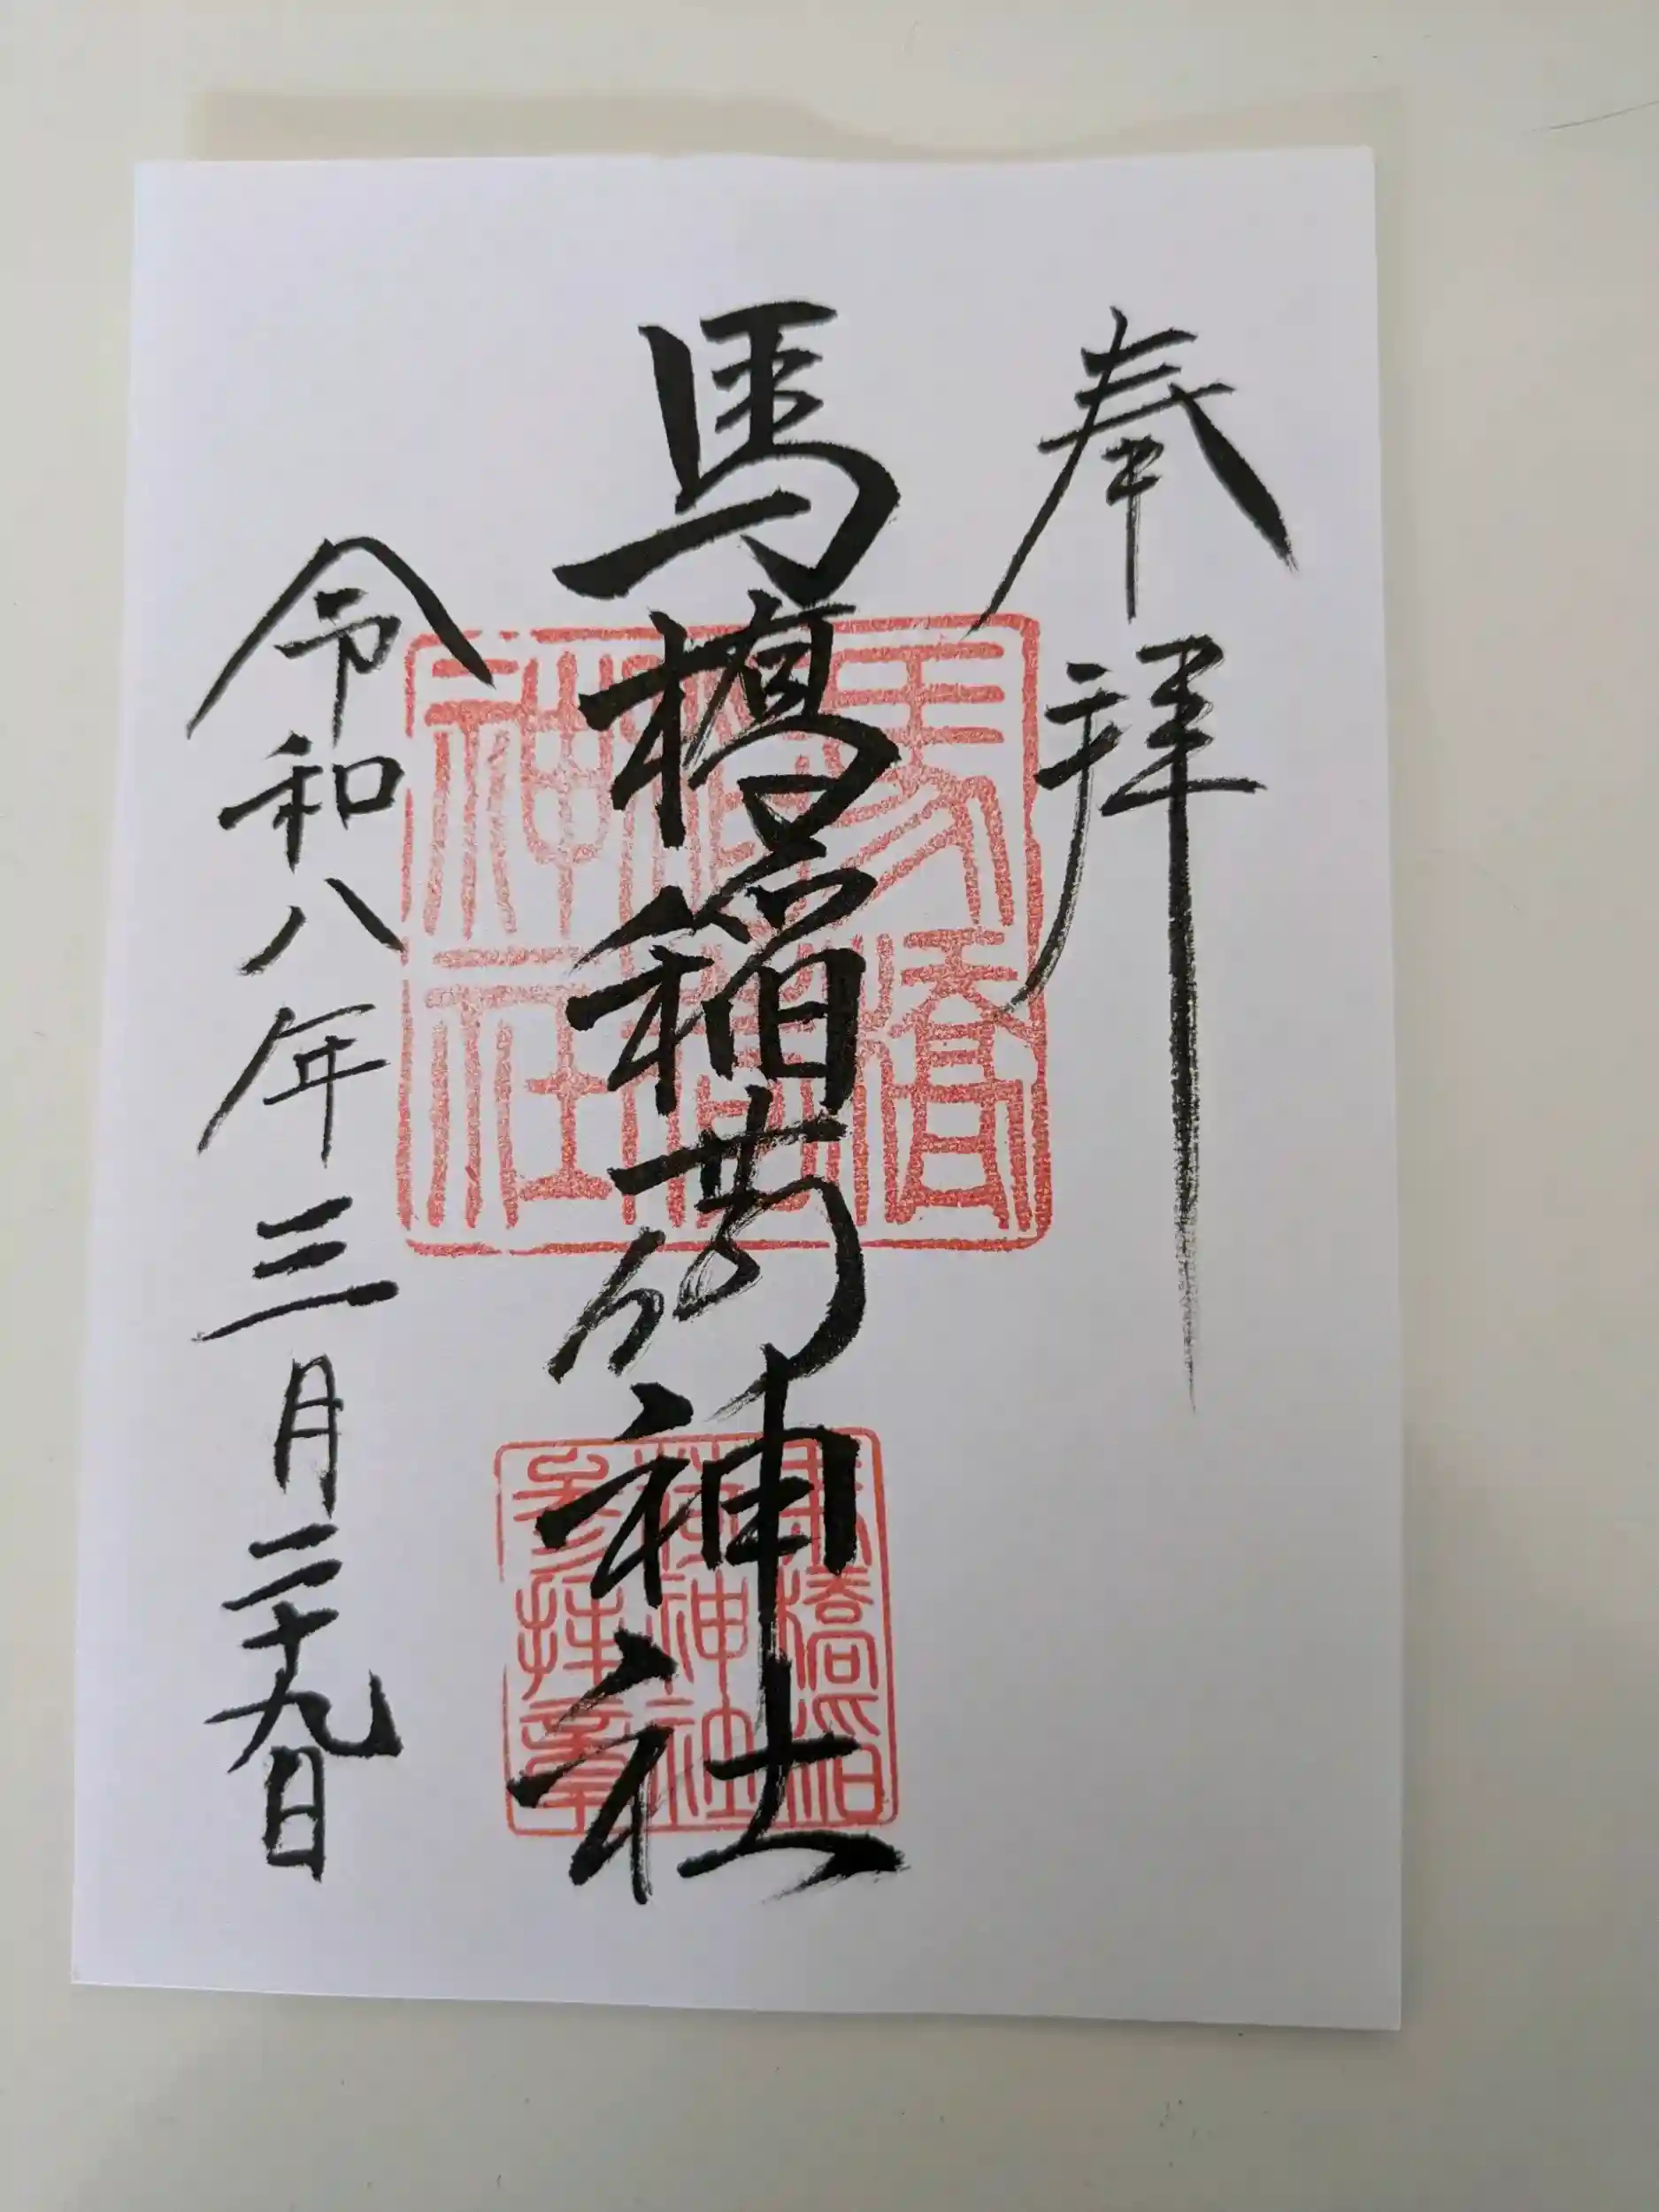 奉拝
馬橋稲荷神社
令和八年三月二十九日
馬橋
稲荷
神社
馬橋稲
荷神社
参拝章